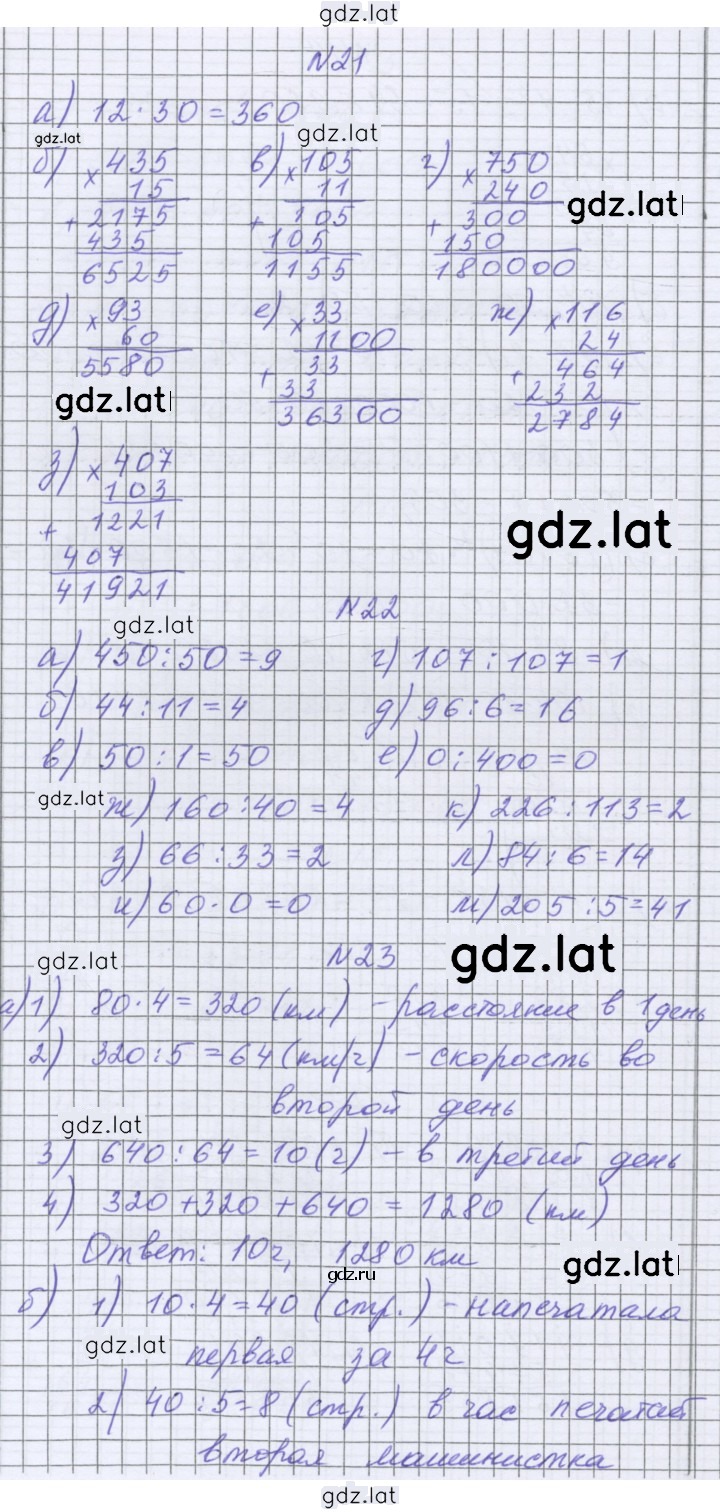 gdz.lat
№21
а) 12 · 30 = 360
gdz.lat
gdz.lat
б) × 435
15
+ 2175
435
6525
в) × 105
11
+ 105
105
1155
г) × 750
240
+ 300
150
180000
gdz.lat
д) × 93
60
5580
е) × 33
1100
+ 33
33
36300
ж) × 116
24
+ 464
232
2784
gdz.lat
з) × 407
103
+ 1221
407
41921
gdz.lat
№22
gdz.lat
а) 450 : 50 = 9
г) 107 : 107 = 1
б) 44 : 11 = 4
д) 96 : 6 = 16
в) 50 : 1 = 50
е) 0 : 400 = 0
gdz.lat
ж) 160 : 40 = 4
к) 226 : 113 = 2
з) 66 : 33 = 2
л) 84 : 6 = 14
и) 60 · 0 = 0
м) 205 : 5 = 41
№23
gdz.lat
gdz.lat
а) 1) 80 · 4 = 320 (км) - расстояние в 1 день
2) 320 : 5 = 64 (км/ч) - скорость во
второй день
gdz.lat
3) 640 : 64 = 10 (ч) - в третий день
4) 320 + 320 + 640 = 1280 (км)
Ответ: 10 ч, 1280 км
gdz.lat
gdz.ru
б) 1) 10 · 4 = 40 (стр.) - напечатала
gdz.lat
первая за 4 ч
2) 40 : 5 = 8 (стр.) в час печатает
вторая машинистка
gdz.lat